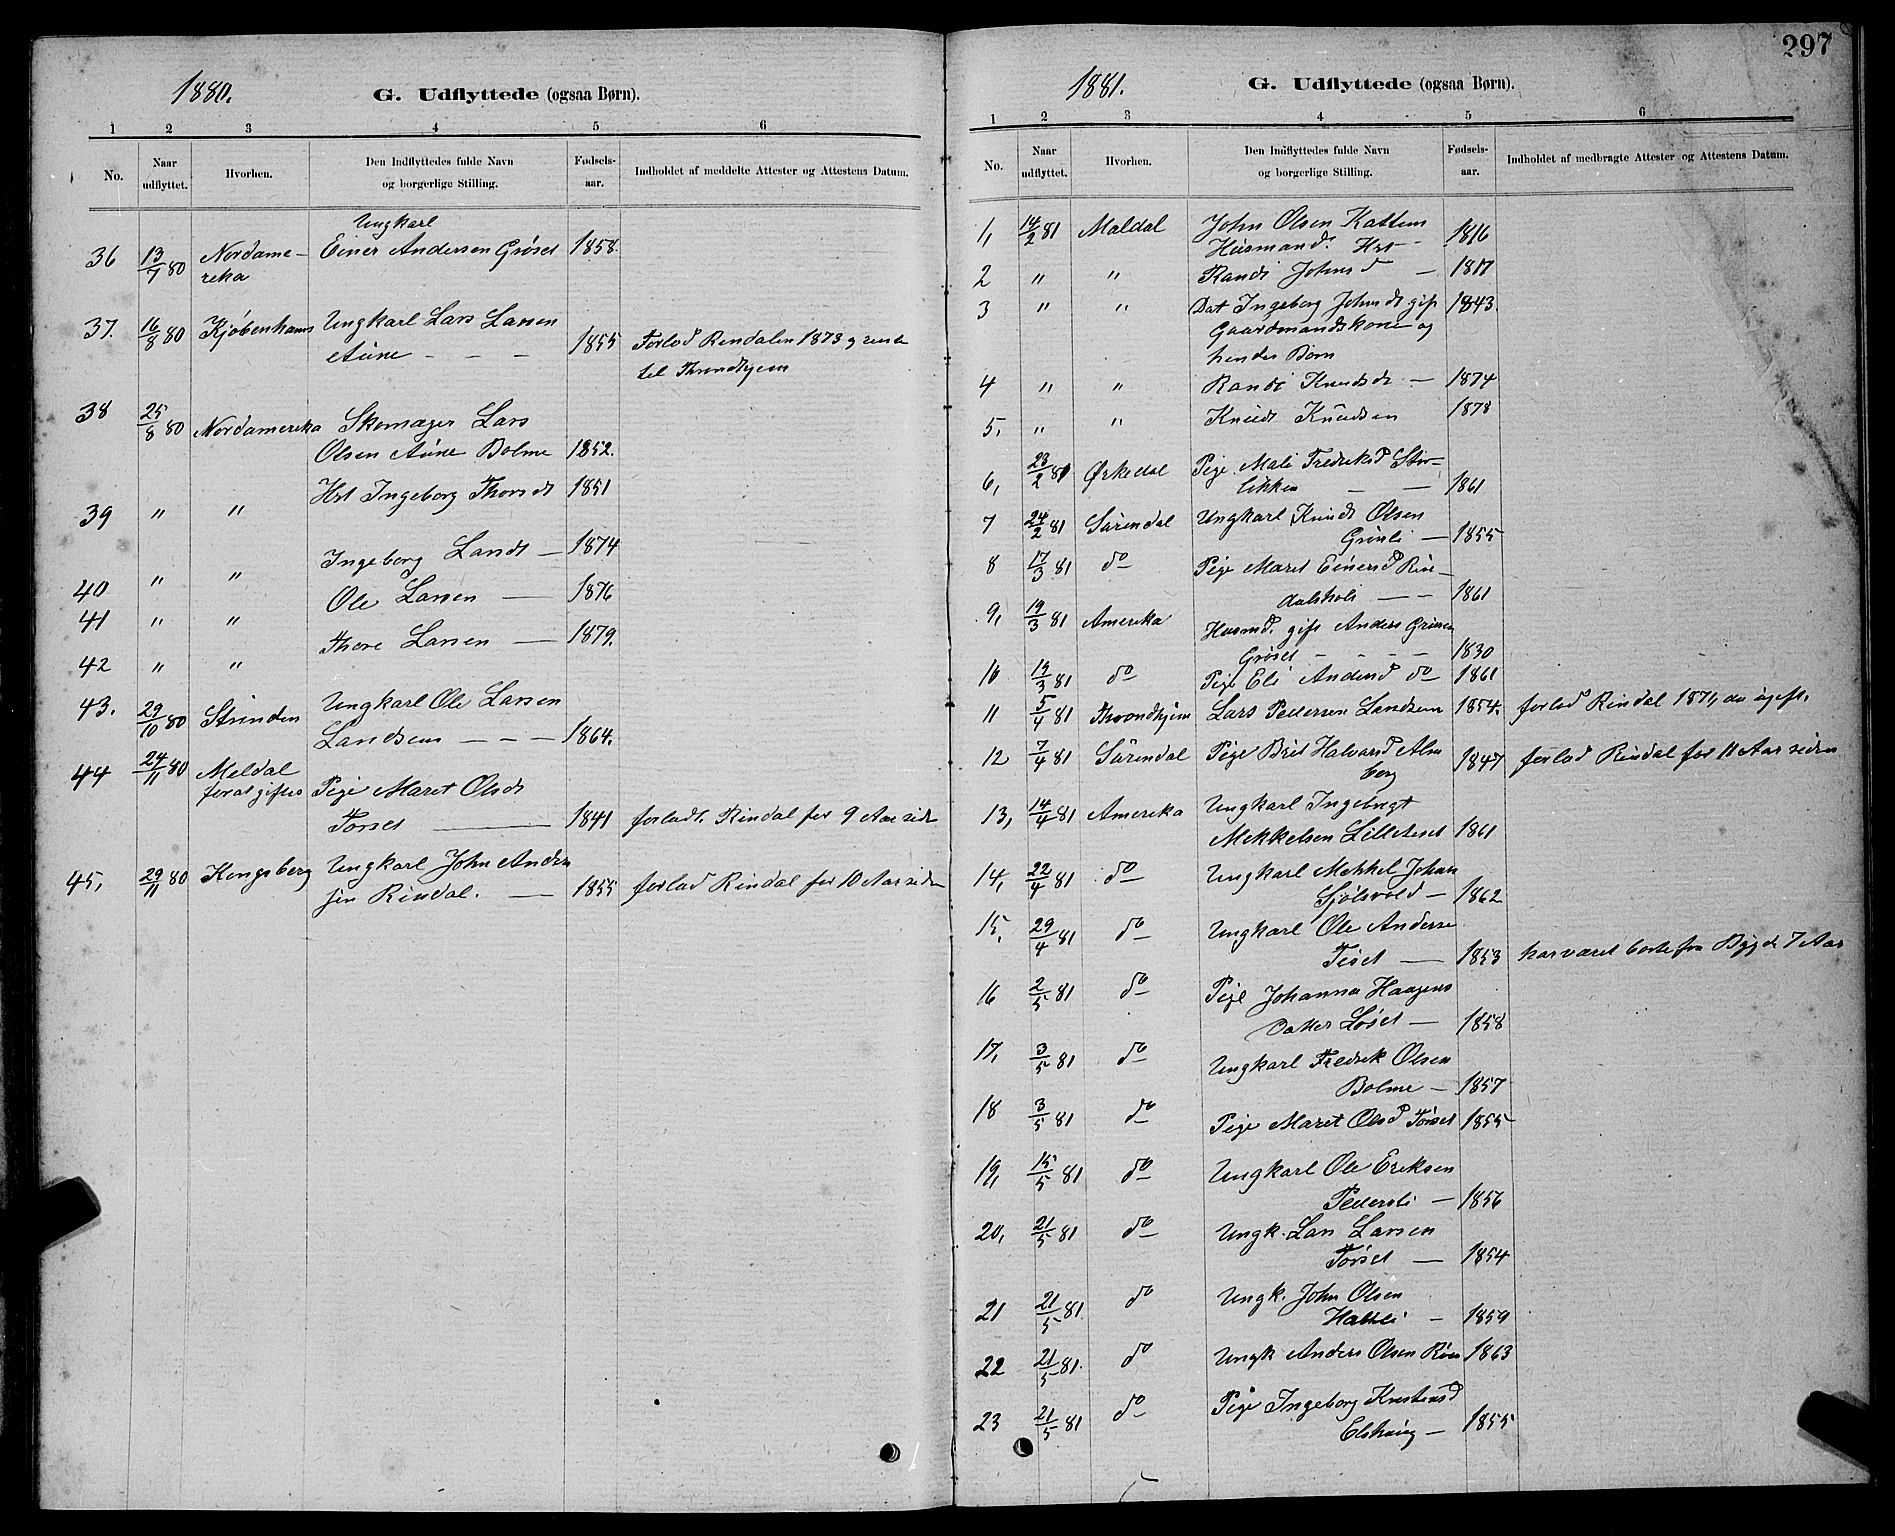 1880.
G. Udflyttede (ogsaa Børn).
1 2 3 4 5 6
No. Naar udflyttet. Hvorhen. Den Indflyttedes fulde Navn og borgerlige Stilling. Fødsels-aar. Indholdet af meddelte Attester og Attestens Datum.
Ungkarl
36 13/7 80 Nordame- Einer Andersen Grøset 1858.
reka
37. 16/8 80 Kjøbenhavn Ungkarl Lars Larsen
Aune - - - 1855 Forlod Rindalen 1873 g reiste
til Throndhjem
38 25/8 80 Nordamerika Skomager Lars
Olsen Aune Bolme 1852.
39 " " Hst Ingeborg Thorsdt 1851
40 " " Ingeborg Larsdt — 1874
41 " " Ole Larsen — 1876
42 " " Thore Larsen — 1879.
43. 29/10 80 Strinden Ungkarl Ole Larsen
Landsem - - - 1864.
44 24/11 80 Meldal
for at giftes Pige Maret Olsdt
Torset — 1841 forladt. Rindal for 9 Aar siden
45, 29/11 80 Kongsberg Ungkarl John Ander
sen Rindal. — 1855 forlod Rindal for 10 Aar siden
297
1881.
G. Udflyttede (ogsaa Børn).
1 2 3 4 5 6
No. Naar udflyttet. Hvorhen. Den Indflyttedes fulde Navn og borgerlige Stilling. Fødsels-aar. Indholdet af medbragte Attester og Attestens Datum.
1, 14/2 81 Maldal John Olsen Kattem
Husmand. Hst - 1816
2 " " Randi Johnsd — 1817
3 " " Dat Ingeborg Johnsdt gift 1843.
Gaardmandskone og
hendes Børn
4 " " Randi Knudsdt — 1874
5, " " Knudt Knudsen 1878
6, 23/2 81 Ørkedal Pige Mali Fredriksd Stor-
likken — — 1861
7 24/2 81 Surendal Ungkarl Knudt Olsen
Grønli — 1855
8 17/3 81 do Pige Maret Einersd Rin-
dalsholi — - 1861
9, 19/3 81 Amerika Husmd. gift Anders
Grøset - - - - 1830
10 19/3 81 do Pige Eli Andersd do 1861
11 5/4 81 Throndhjem Lars Pedersen Landsem 1854. forlod Rindal 1871, da ugift.
12 7/4 81 Surendal Pige Brit Halvarsd Alm
berg 1847 forlod Rindal for 11 Aar siden
13, 14/4 81 Amerika Ungkarl Ingebrigt
Mekkelsen Lilleteset 1861
14, 22/4 81 do Ungkarl Mekkel Johans
Sjølsvold — 1862
15, 29/4 81 do Ungkarl Ole Anderse
Tiset — 1853 har været borte fra Bygde 7 Aar
16 2/5 81 do Pige Johanna Haagens
Datter Løset — 1858
17, 3/5 81 do Ungkarl Fredrik Olsen
Bolme — 1857
18 3/5 81 do Pige Maret Olsd Torset 1855
19, 15/5 81 do Ungkarl Ole Eriksen
Pedersli — 1856
20, 21/5 81 do Ungk. Lars Larsen
Torset — 1854
21 21/5 81. do Ungk. John Olsen
Haltli - 1859
22 21/5 81. do Ungk Anders Olsen Røen 1863
23 21/5 81 do Pige Ingeborg Kristensd
Elshaug — 1855